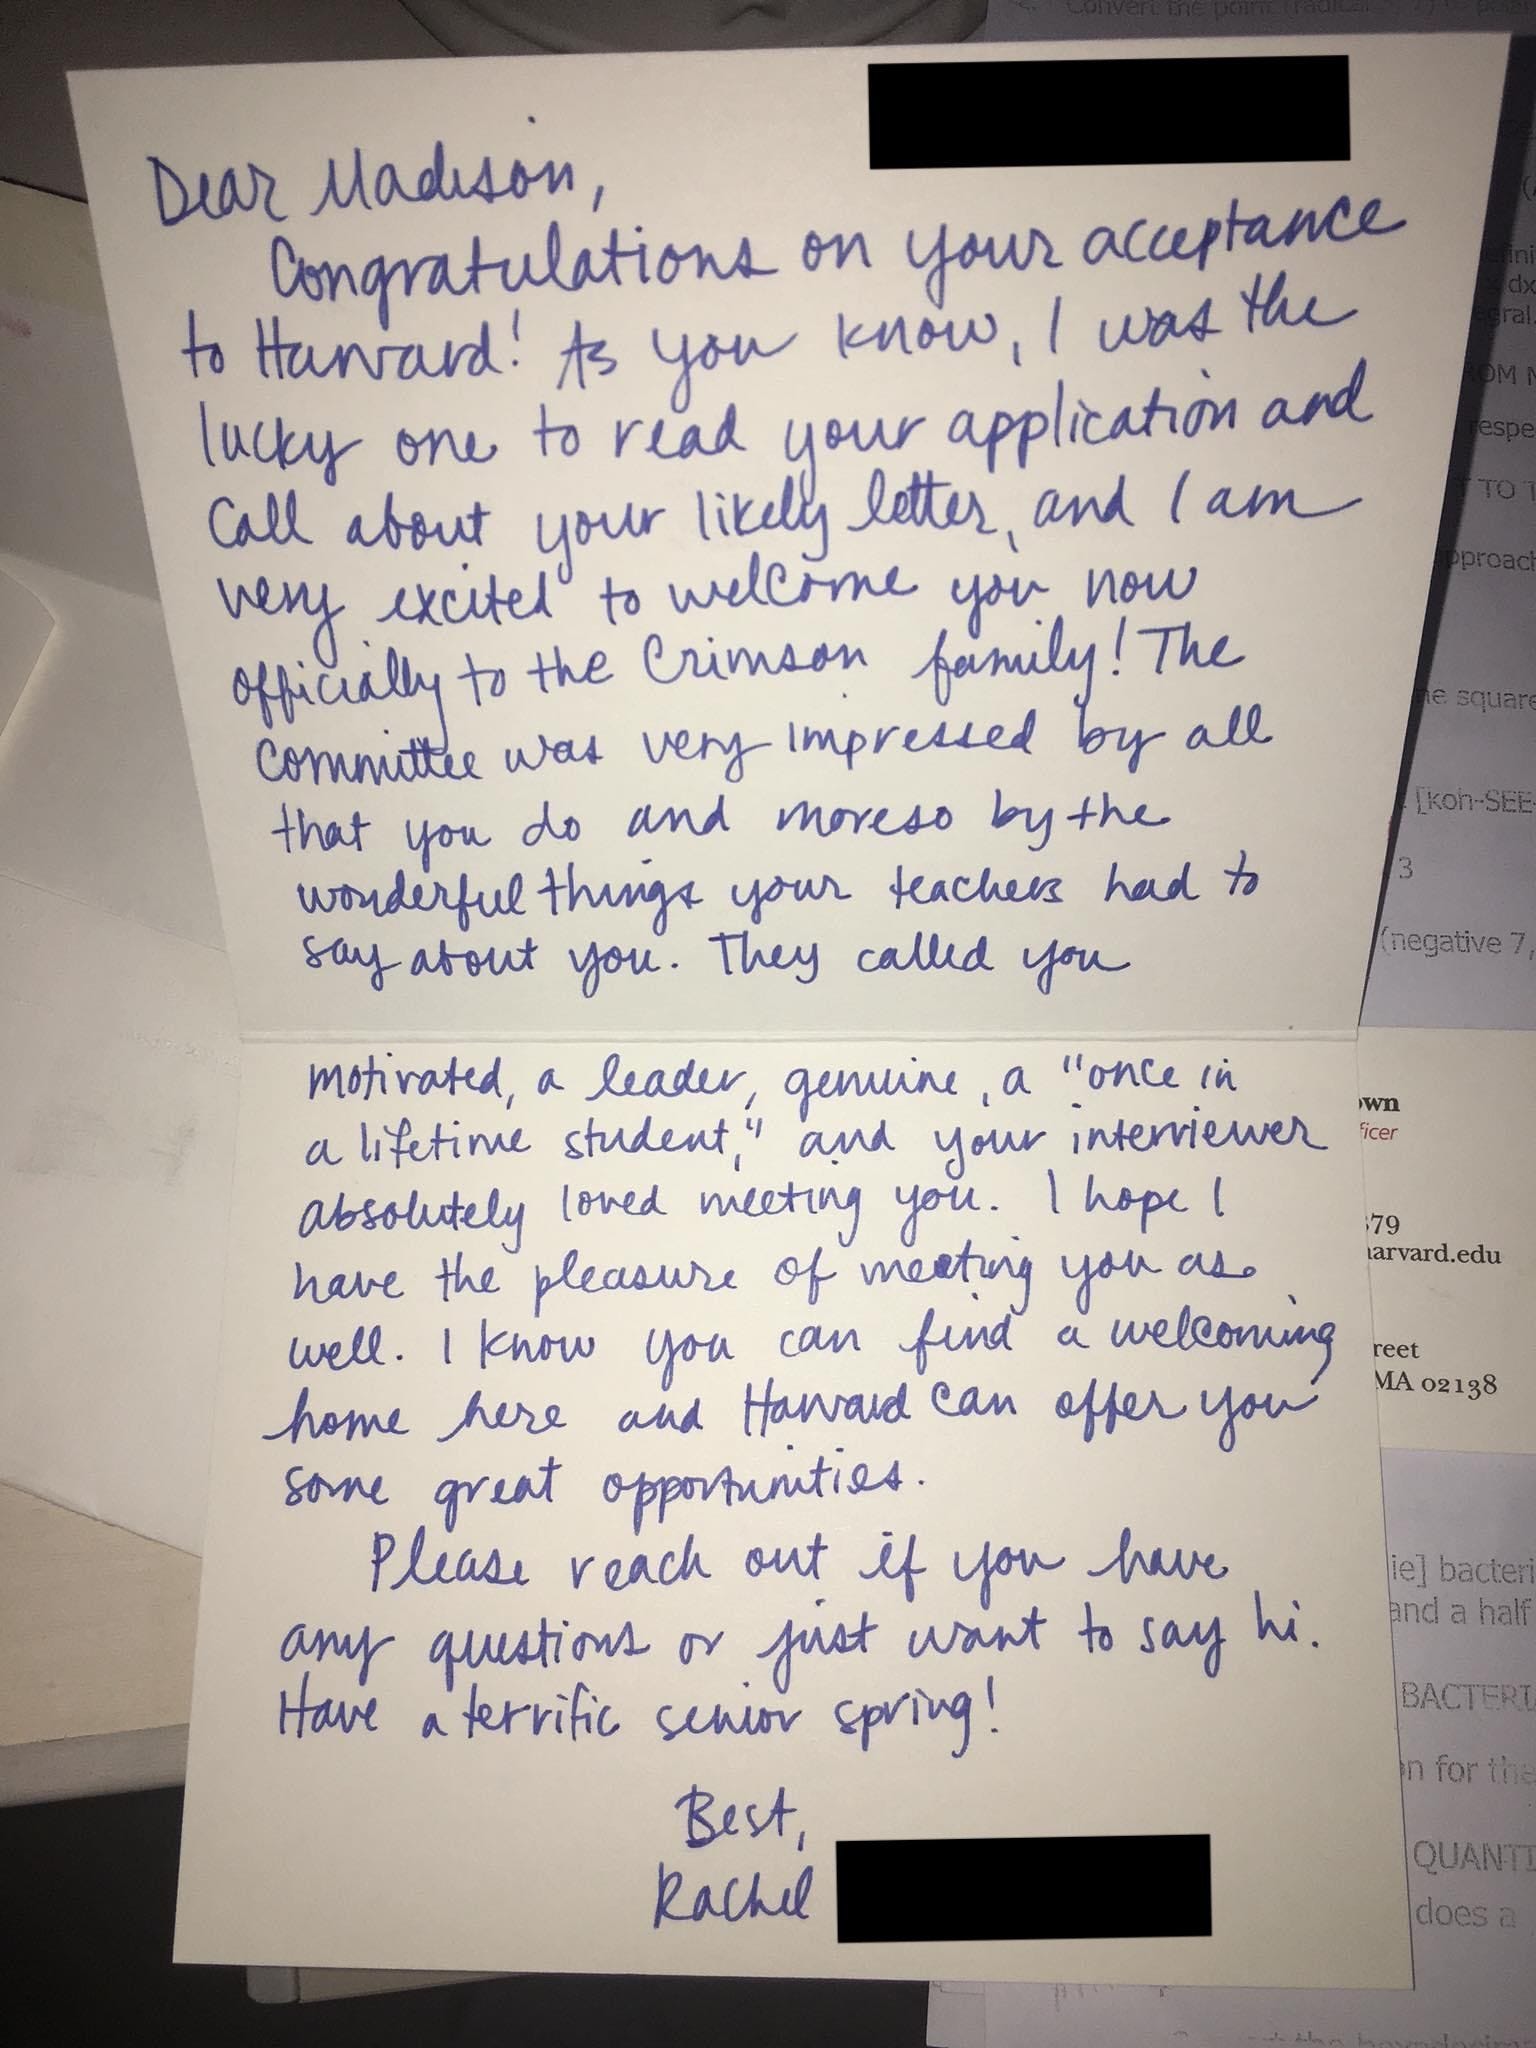 Convert the point (radical
Dear Madison,
Congratulations on your acceptance
to Harvard! As you know, I was the
lucky one to read your application and
call about your likely letter, and I am
very excited to welcome you now
officially to the Crimson family! The
committee was very impressed by all
that you do and moreso by the
wonderful things your teachers had to
say about you. They called you
motivated, a leader, genuine, a "once in
a lifetime student," and your interviewer
absolutely loved meeting you. I hope I
have the pleasure of meeting you as
well. I know you can find a welcoming
home here and Harvard can offer you
some great opportunities.
Please reach out if you have
any questions or just want to say hi.
Have a terrific senior spring!
Best,
Rachel
dx
gral.
OM
respe
TO
pproach
ne square
[koh-SEE-
3
(negative 7,
own
ficer
79
harvard.edu
reet
MA 02138
ie] bacteri
and a half
BACTERI
n for the
QUANTI
does a